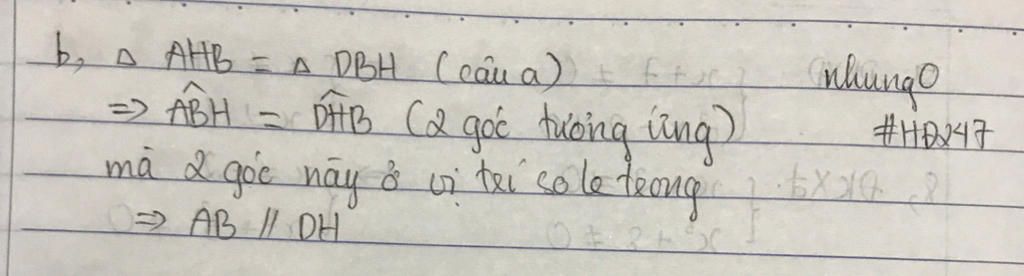 b, Δ AHB = Δ DBH (câu a) nhung0
=> \widehat{ABH} = \widehat{DHB} (2 góc tương ứng) #HĐ247
mà 2 góc này ở vị trí so le trong
=> AB // DH